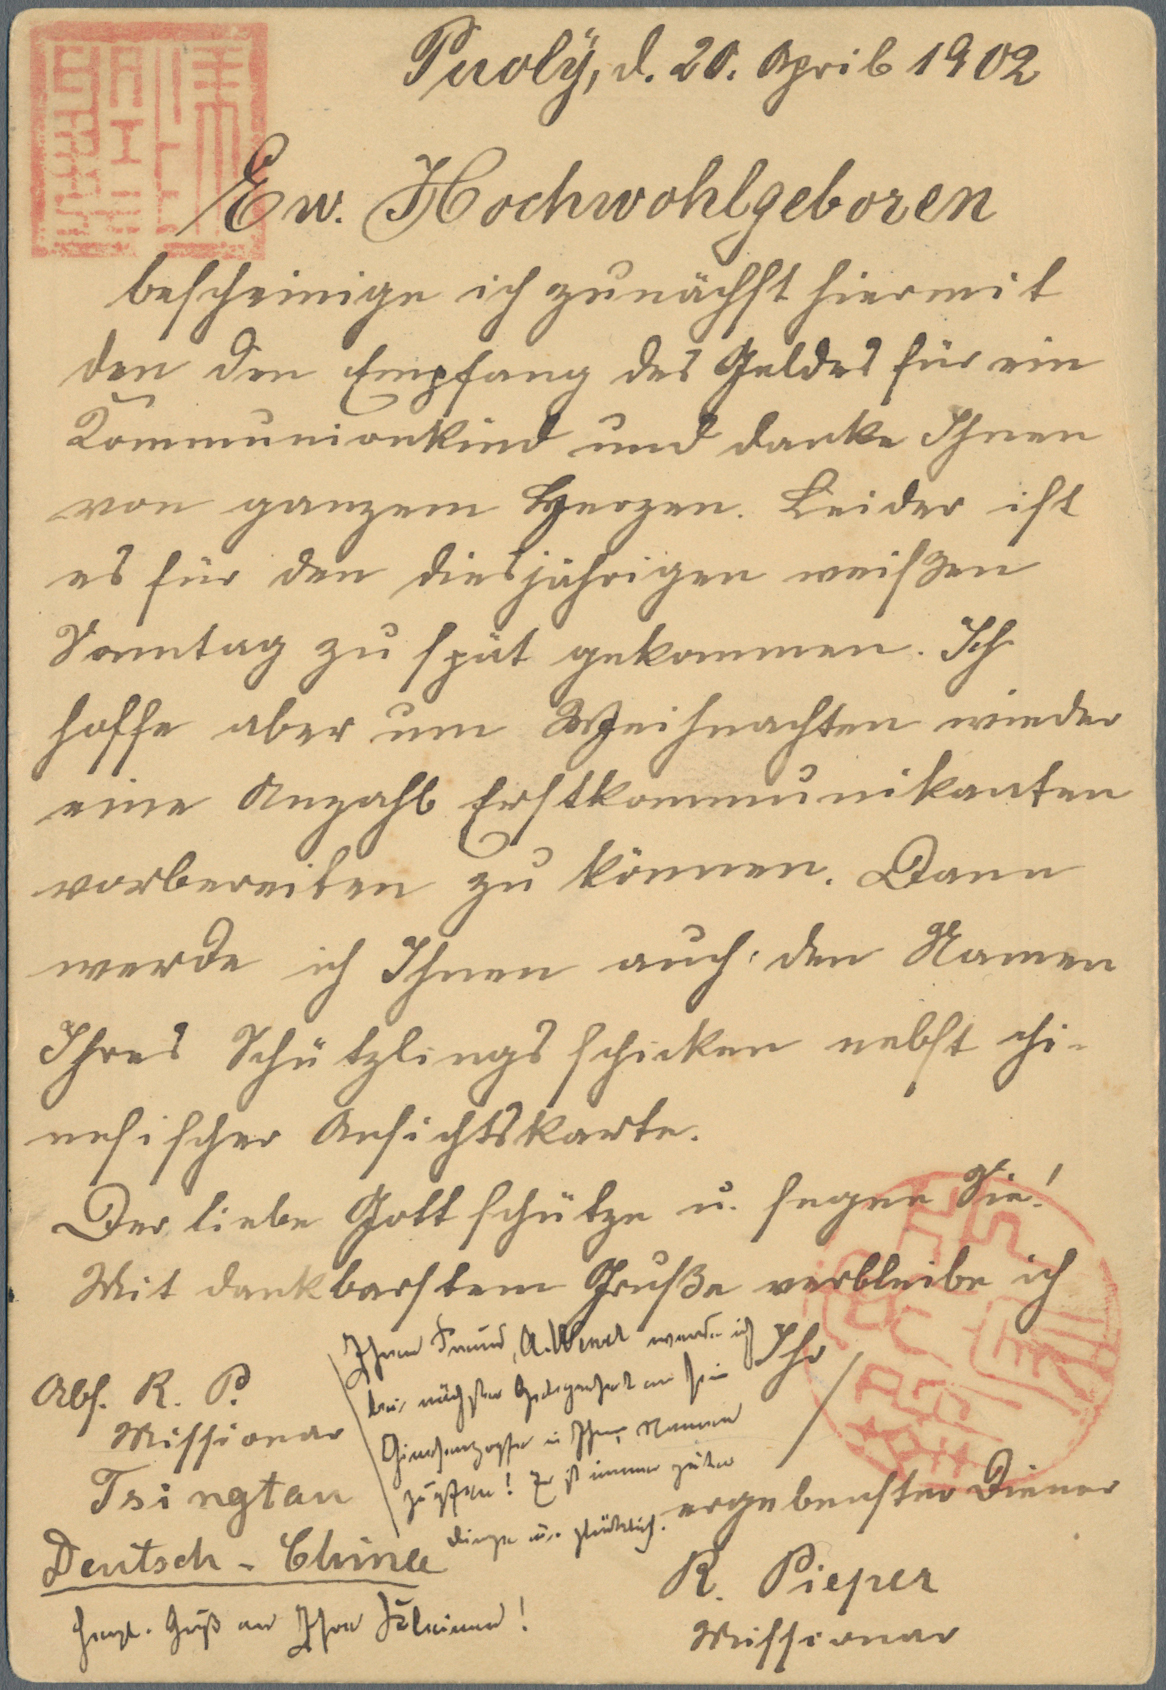 Puoly, d. 20. April 1902
Ew. Hochwohlgeboren
bescheinige ich zunächst hiermit
den den Empfang des Geldes für ein
Kommunionkind und danke Ihnen
von ganzem Herzen. Leider ist
es für den diesjährigen weißen
Sonntag zu spät gekommen. Ich
hoffe aber um Weihnachten wieder
eine Anzahl Erstkommunikanten
vorbereiten zu können. Dann
werde ich Ihnen auch den Namen
Ihres Schützlings schicken nebst chi-
nesischer Ansichtskarte.
Der liebe Gott schütze u. segne Sie!
Mit dankbarstem Gruße verbleibe ich
Ihr
ergebenster Diener
R. Pieper
Missionar
Abs. R. P.
Missionar
Tsingtau
Deutsch-China
Ihrem Freund, A. werde ich
bei nächster Gelegenheit an sein
in Ihrem Namen
! Er ist immer guter
Dinge u. glücklich.
Herzl. Gruß an Ihre Kleinen!